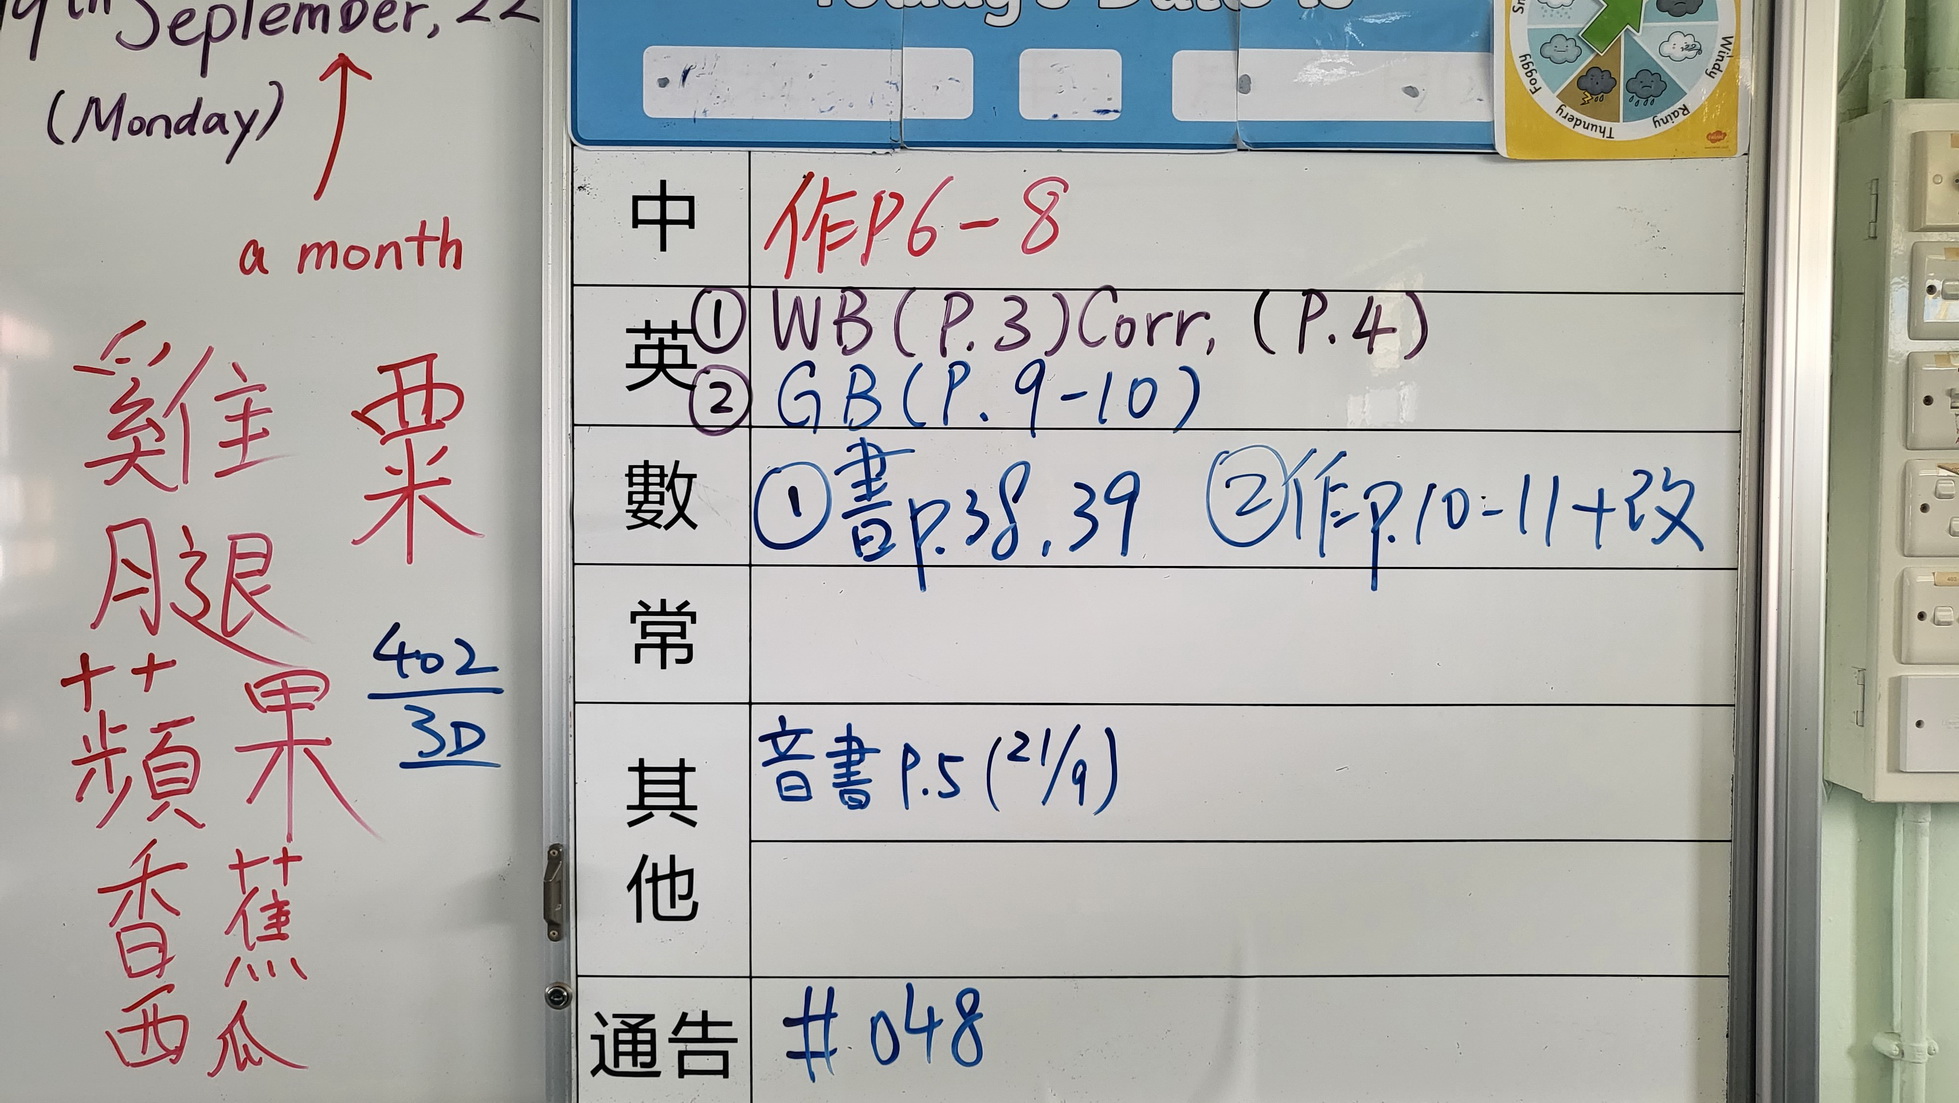 19th September, 22
(Monday)
a month
雞 粟
米
腿
蘋果
香蕉
西瓜
402
3D
Today's Date is
Foggy
Thundery
Rainy
Windy
中 作P6-8
英 ① WB(P.3)Corr, (P.4)
② GB(P.9-10)
數 ①書p.38,39 ②作p.10-11+改
常
其他 音書P.5(21/9)
通告 #048